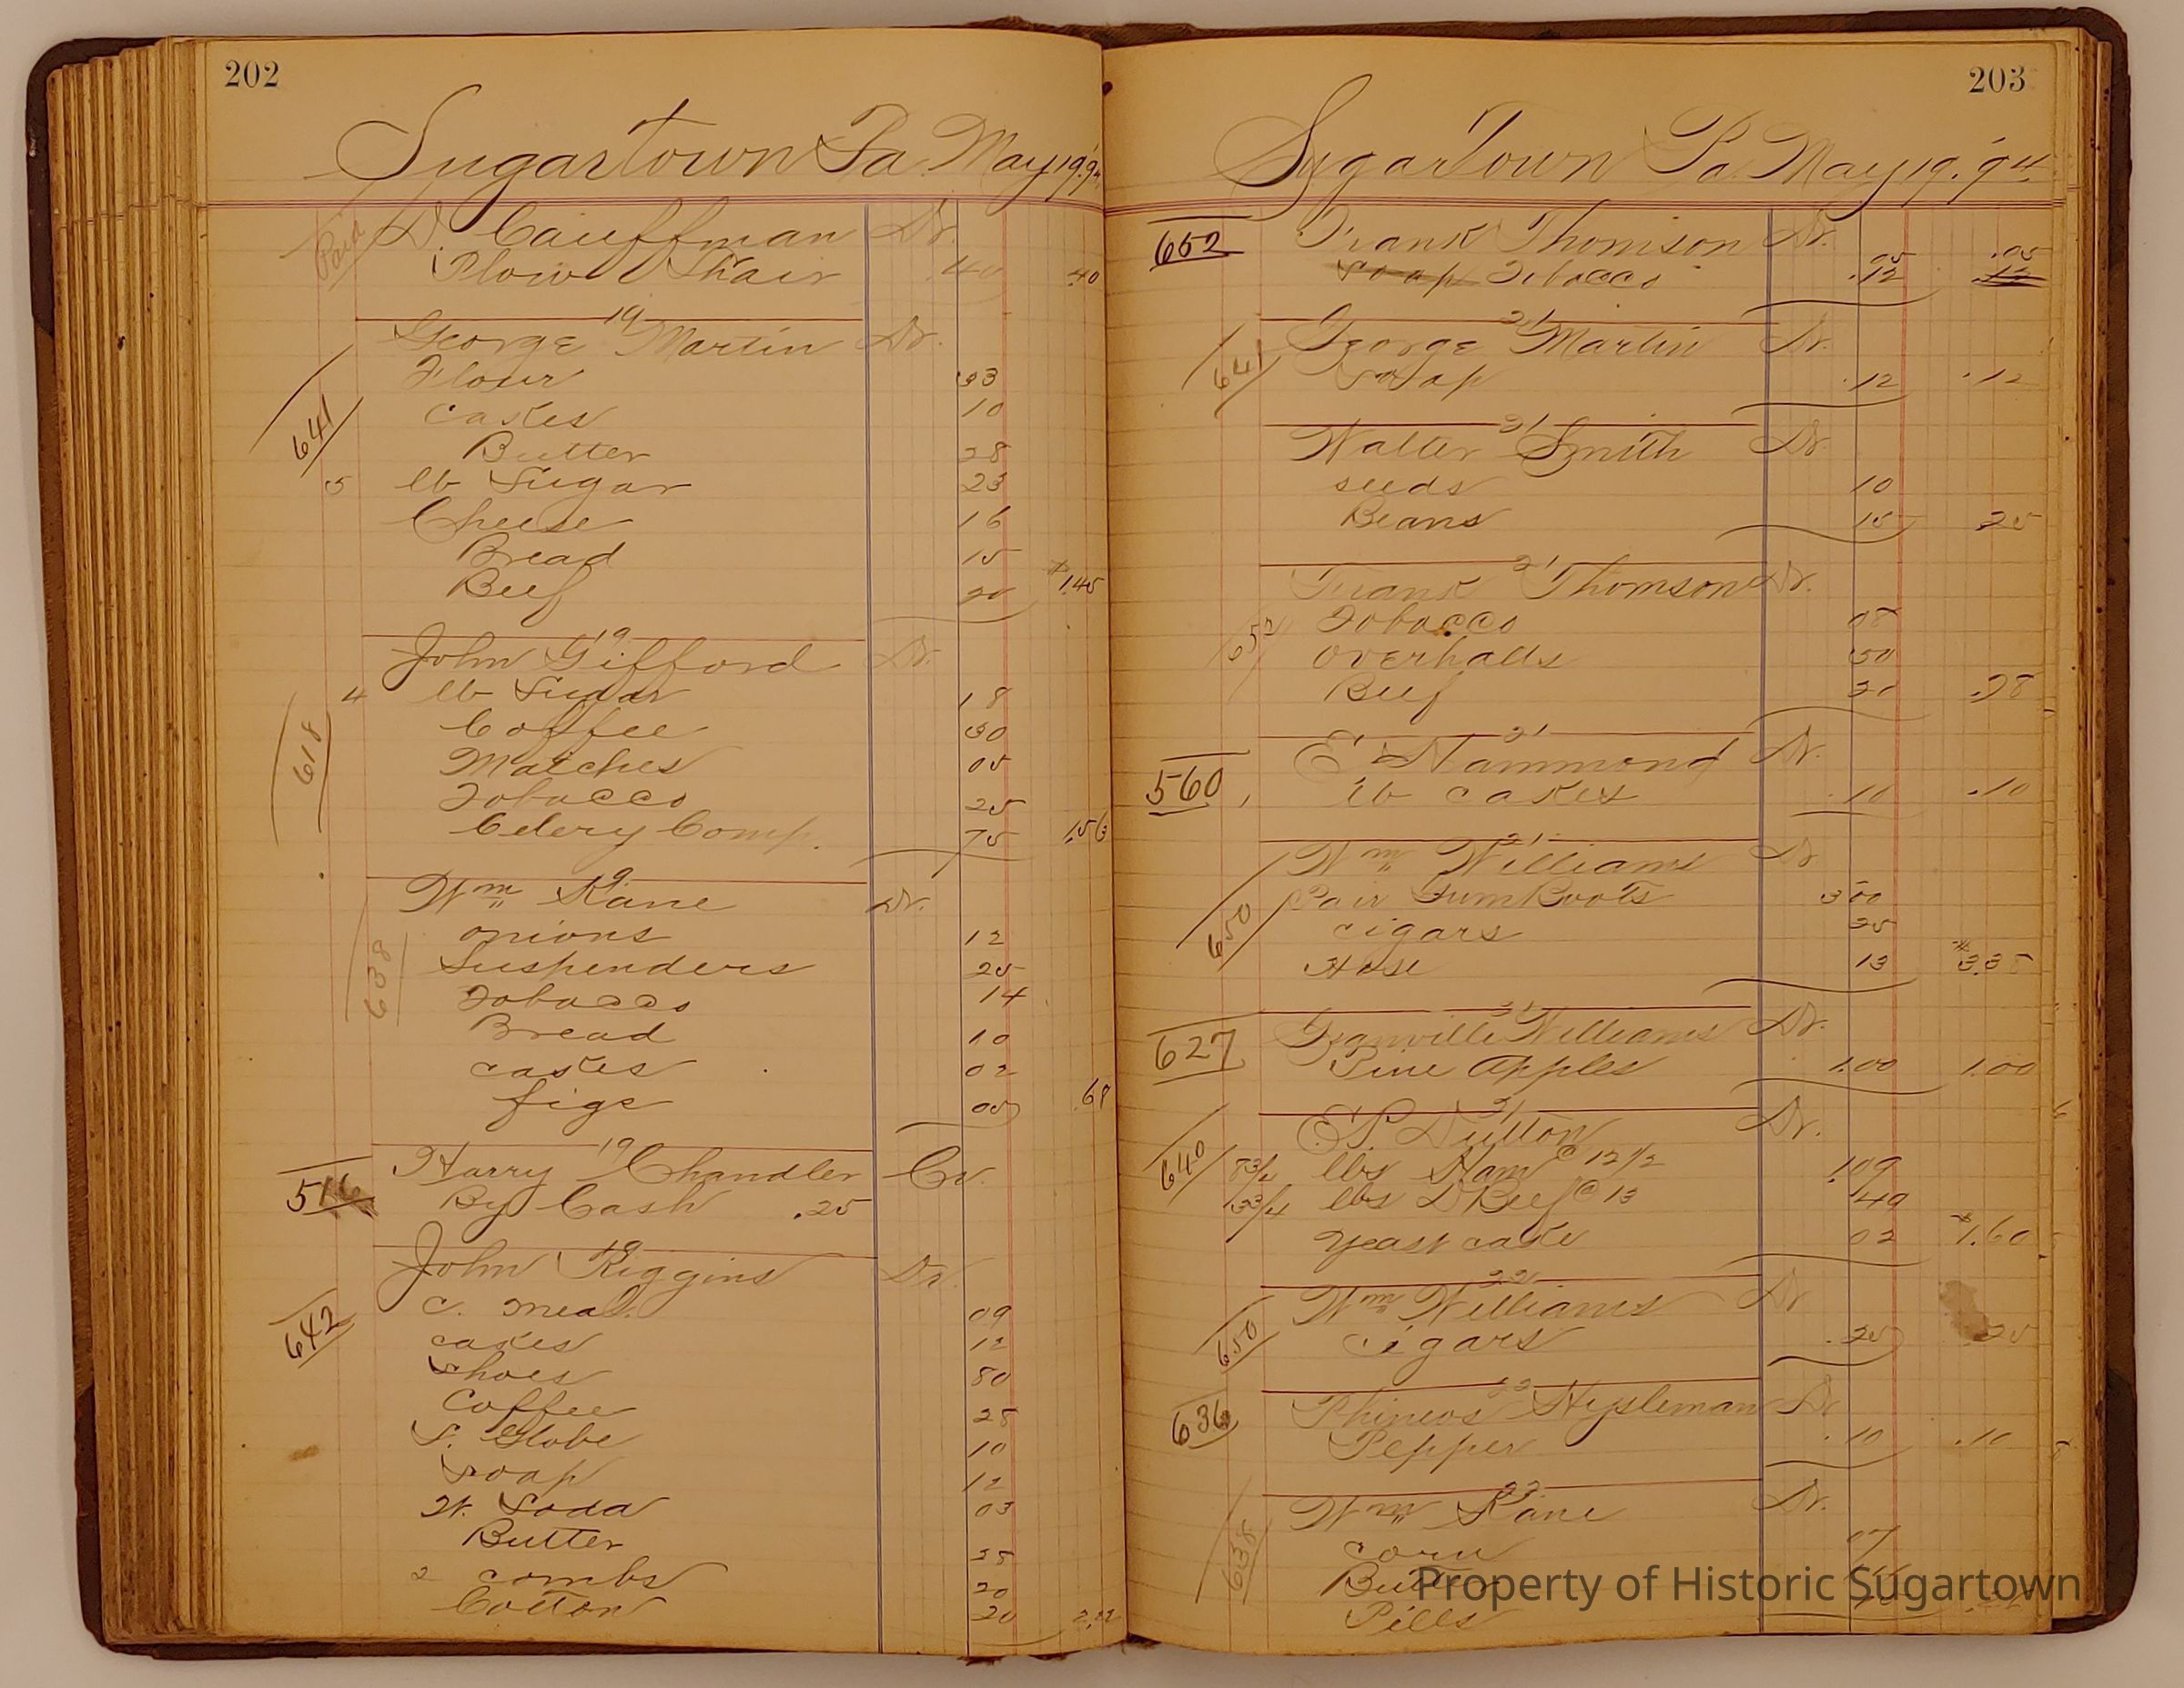 202
Sugartown Pa. May 19. '94
Paid D. Cauffman Dr.
Plow Shair .40 .40
19
George Martin Dr.
641
Flour 33
cakes 10
Butter 28
5 lb Sugar 23
Cheese 16
Bread 15
Beef 20 $1.45
19
John Gifford Dr.
618
4 lb Sugar 18
Coffee 30
Matches 05
Tobacco 25
Celery Comp. 75 1.53
19
Wm Kane Dr.
638
onions 12
Suspenders 25
Tobacco 14
Bread 10
cakes 02
figs 05 .68
19
516 Harry Chandler Cr.
By Cash .25
19
John Riggins Dr.
642
C. meal. 09
cakes 12
Shoes 80
Coffee 28
S. Globe 10
Soap 12
W. Soda 03
Butter 28
2 combs 20
Cotton 20 2.22
203
Sugartown Pa. May 19. '94
652 Frank Thomson Dr.
Soap Tobacco .05 .12 .05 .12
21
641 George Martin Dr.
Soap .12 .12
21
Walter Smith Dr.
seeds 10
Beans 15 25
21
Frank Thomson Dr.
652
Tobacco 08
overhalls 50
Beef 20 .78
21
E Hammond Dr.
560 1 lb cakes .10 .10
21
Wm Williams Dr.
650
Pair Gum Boots 3 00
cigars 25
Hose 13 $3.38
21
627 Granville Williams Dr.
Pine Apples 1.00 1.00
21
E. P. Dutton Dr.
640
8 3/4 lbs Ham @ 12 1/2 1.09
3 3/4 lbs D Beef @ 13 49
yeast cake 02 $1.60
22
Wm Williams Dr
650
cigars .25 25
22
636 Phineos Hysleman Dr
Pepper .10 .10
22
Wm Kane Dr.
638
corn 07
Butter
Pills
Property of Historic Sugartown